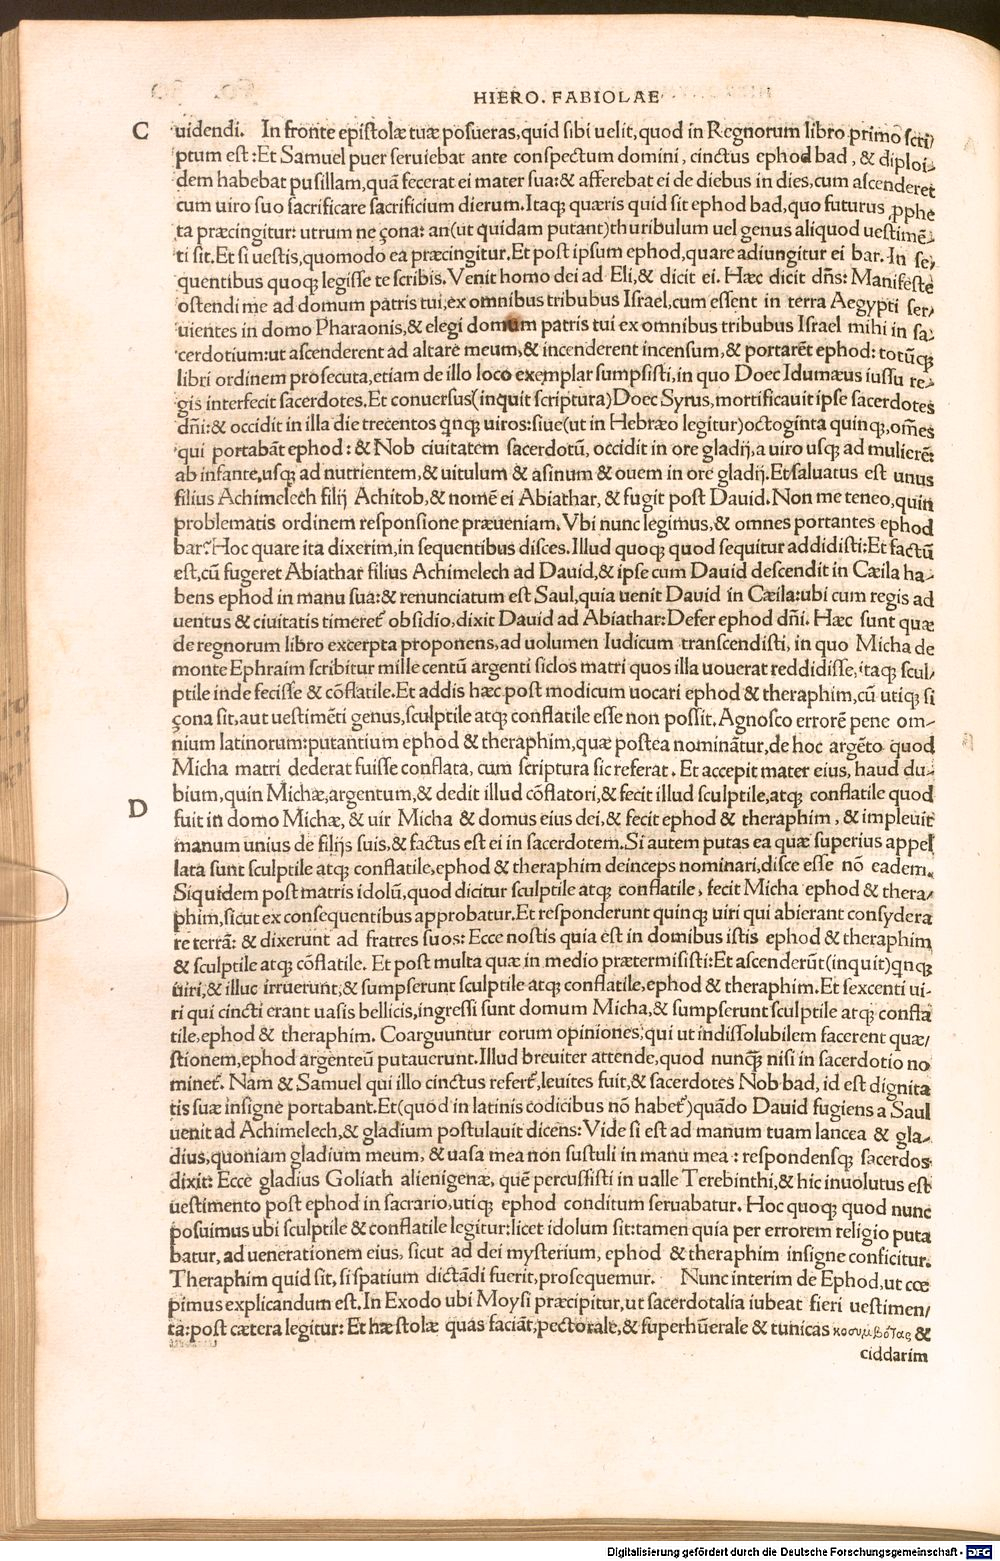 HIERO. FABIOLAE
C uidendi. In fronte epistolæ tuæ posueras, quid sibi uelit, quod in Regnorum libro primo scri/
ptum est: Et Samuel puer seruiebat ante conspectum domini, cinctus ephod bad, & diploi/
dem habebat pusillam, quã fecerat ei mater sua: & afferebat ei de diebus in dies, cum ascenderet
cum uiro suo sacrificare sacrificium dierum. Itaqꝫ quæris quid sit ephod bad, quo futurus ꝓphe
ta præcingitur: utrum ne çona: an (ut quidam putant) thuribulum uel genus aliquod uestimẽ/
ti sit. Et si uestis, quomodo ea præcingitur. Et post ipsum ephod, quare adiungitur ei bar. In se/
quentibus quoqꝫ legisse te scribis. Venit homo dei ad Eli, & dicit ei. Hæc dicit dñs: Manifeste
ostendi me ad domum patris tui, ex omnibus tribubus Israel, cum essent in terra Aegypti ser/
uientes in domo Pharaonis, & elegi domum patris tui ex omnibus tribubus Israel mihi in sa/
cerdotium: ut ascenderent ad altare meum, & incenderent incensum, & portarẽt ephod: totũqꝫ
libri ordinem prosecuta, etiam de illo loco exemplar sumpsisti, in quo Doec Idumæus iussu re/
gis interfecit sacerdotes. Et conuersus (inquit scriptura) Doec Syrus, mortificauit ipse sacerdotes
dñi: & occidit in illa die trecentos qnqꝫ uiros: siue (ut in Hebræo legitur) octoginta quinqꝫ, om̃es
qui portabãt ephod: & Nob ciuitatem sacerdotũ, occidit in ore gladij, a uiro usqꝫ ad mulierẽ:
ab infante, usqꝫ ad nutrientem, & uitulum & asinum & ouem in ore gladij. Et saluatus est unus
filius Achimelech filij Achitob, & nomẽ ei Abiathar, & fugit post Dauid. Non me teneo, quin
problematis ordinem responsione præueniam. Vbi nunc legimus, & omnes portantes ephod
bar: Hoc quare ita dixerim, in sequentibus disces. Illud quoqꝫ quod sequitur addidisti: Et factũ
est, cũ fugeret Abiathar filius Achimelech ad Dauid, & ipse cum Dauid descendit in Cæila ha/
bens ephod in manu sua: & renunciatum est Saul, quia uenit Dauid in Cæila: ubi cum regis ad
uentus & ciuitatis timeret᷑ obsidio, dixit Dauid ad Abiathar: Defer ephod dñi. Hæc sunt quæ
de regnorum libro excerpta proponens, ad uolumen Iudicum transcendisti, in quo Micha de
monte Ephraim scribitur mille centũ argenti siclos matri quos illa uouerat reddidisse, itaqꝫ scul/
ptile inde fecisse & cõflatile. Et addis hæc post modicum uocari ephod & theraphim, cũ utiqꝫ si
çona sit, aut uestimẽti genus, sculptile atqꝫ conflatile esse non possit. Agnosco errorẽ pene om/
nium latinorum: putantium ephod & theraphim, quæ postea nominãtur, de hoc argẽto quod
Micha matri dederat fuisse conflata, cum scriptura sic referat. Et accepit mater eius, haud du/
bium, quin Michæ, argentum, & dedit illud cõflatori, & fecit illud sculptile, atqꝫ conflatile quod
D fuit in domo Michæ, & uir Micha & domus eius dei, & fecit ephod & theraphim, & impleuit
manum unius de filijs suis, & factus est ei in sacerdotem. Si autem putas ea quæ superius appel
lata sunt sculptile atqꝫ conflatile, ephod & theraphim deinceps nominari, disce esse nõ eadem.
Siquidem post matris idolũ, quod dicitur sculptile atqꝫ conflatile, fecit Micha ephod & thera/
phim, sicut ex consequentibus approbatur. Et responderunt quinqꝫ uiri qui abierant consydera
re terrã: & dixerunt ad fratres suos: Ecce nostis quia est in domibus istis ephod & theraphim
& sculptile atqꝫ cõflatile. Et post multa quæ in medio prætermisisti: Et ascenderũt (inquit) qnqꝫ
uiri, & illuc irruerunt, & sumpserunt sculptile atqꝫ conflatile, ephod & theraphim. Et sexcenti ui-
ri qui cincti erant uasis bellicis, ingressi sunt domum Micha, & sumpserunt sculptile atqꝫ confla
tile, ephod & theraphim. Coarguuntur eorum opiniones, qui ut indissolubilem facerent quæ/
stionem, ephod argenteũ putauerunt. Illud breuiter attende, quod nunqꝫ̃ nisi in sacerdotio no
minet᷑. Nam & Samuel qui illo cinctus refert᷑, leuites fuit, & sacerdotes Nob bad, id est dignita
tis suæ insigne portabant. Et (quod in latinis codicibus nõ habet᷑) quãdo Dauid fugiens a Saul
uenit ad Achimelech, & gladium postulauit dicens: Vide si est ad manum tuam lancea & gla/
dius, quoniam gladium meum, & uasa mea non sustuli in manu mea: respondensqꝫ sacerdos
dixit: Ecce gladius Goliath alienigenæ, quẽ percussisti in ualle Terebinthi, & hic inuolutus est
uestimento post ephod in sacrario, utiqꝫ ephod conditum seruabatur. Hoc quoqꝫ quod nunc
posuimus ubi sculptile & conflatile legitur: licet idolum sit: tamen quia per errorem religio puta
batur, ad uenerationem eius, sicut ad dei mysterium, ephod & theraphim insigne conficitur.
Theraphim quid sit, si spatium dictãdi fuerit, prosequemur. Nunc interim de Ephod, ut cœ
pimus explicandum est. In Exodo ubi Moysi præcipitur, ut sacerdotalia iubeat fieri uestimen/
ta: post cætera legitur: Et hæ stolæ quas faciãt, pectorale, & superhũerale & tunicas κοσυμβότας &
ciddarim
Digitalisierung gefördert durch die Deutsche Forschungsgemeinschaft - DFG